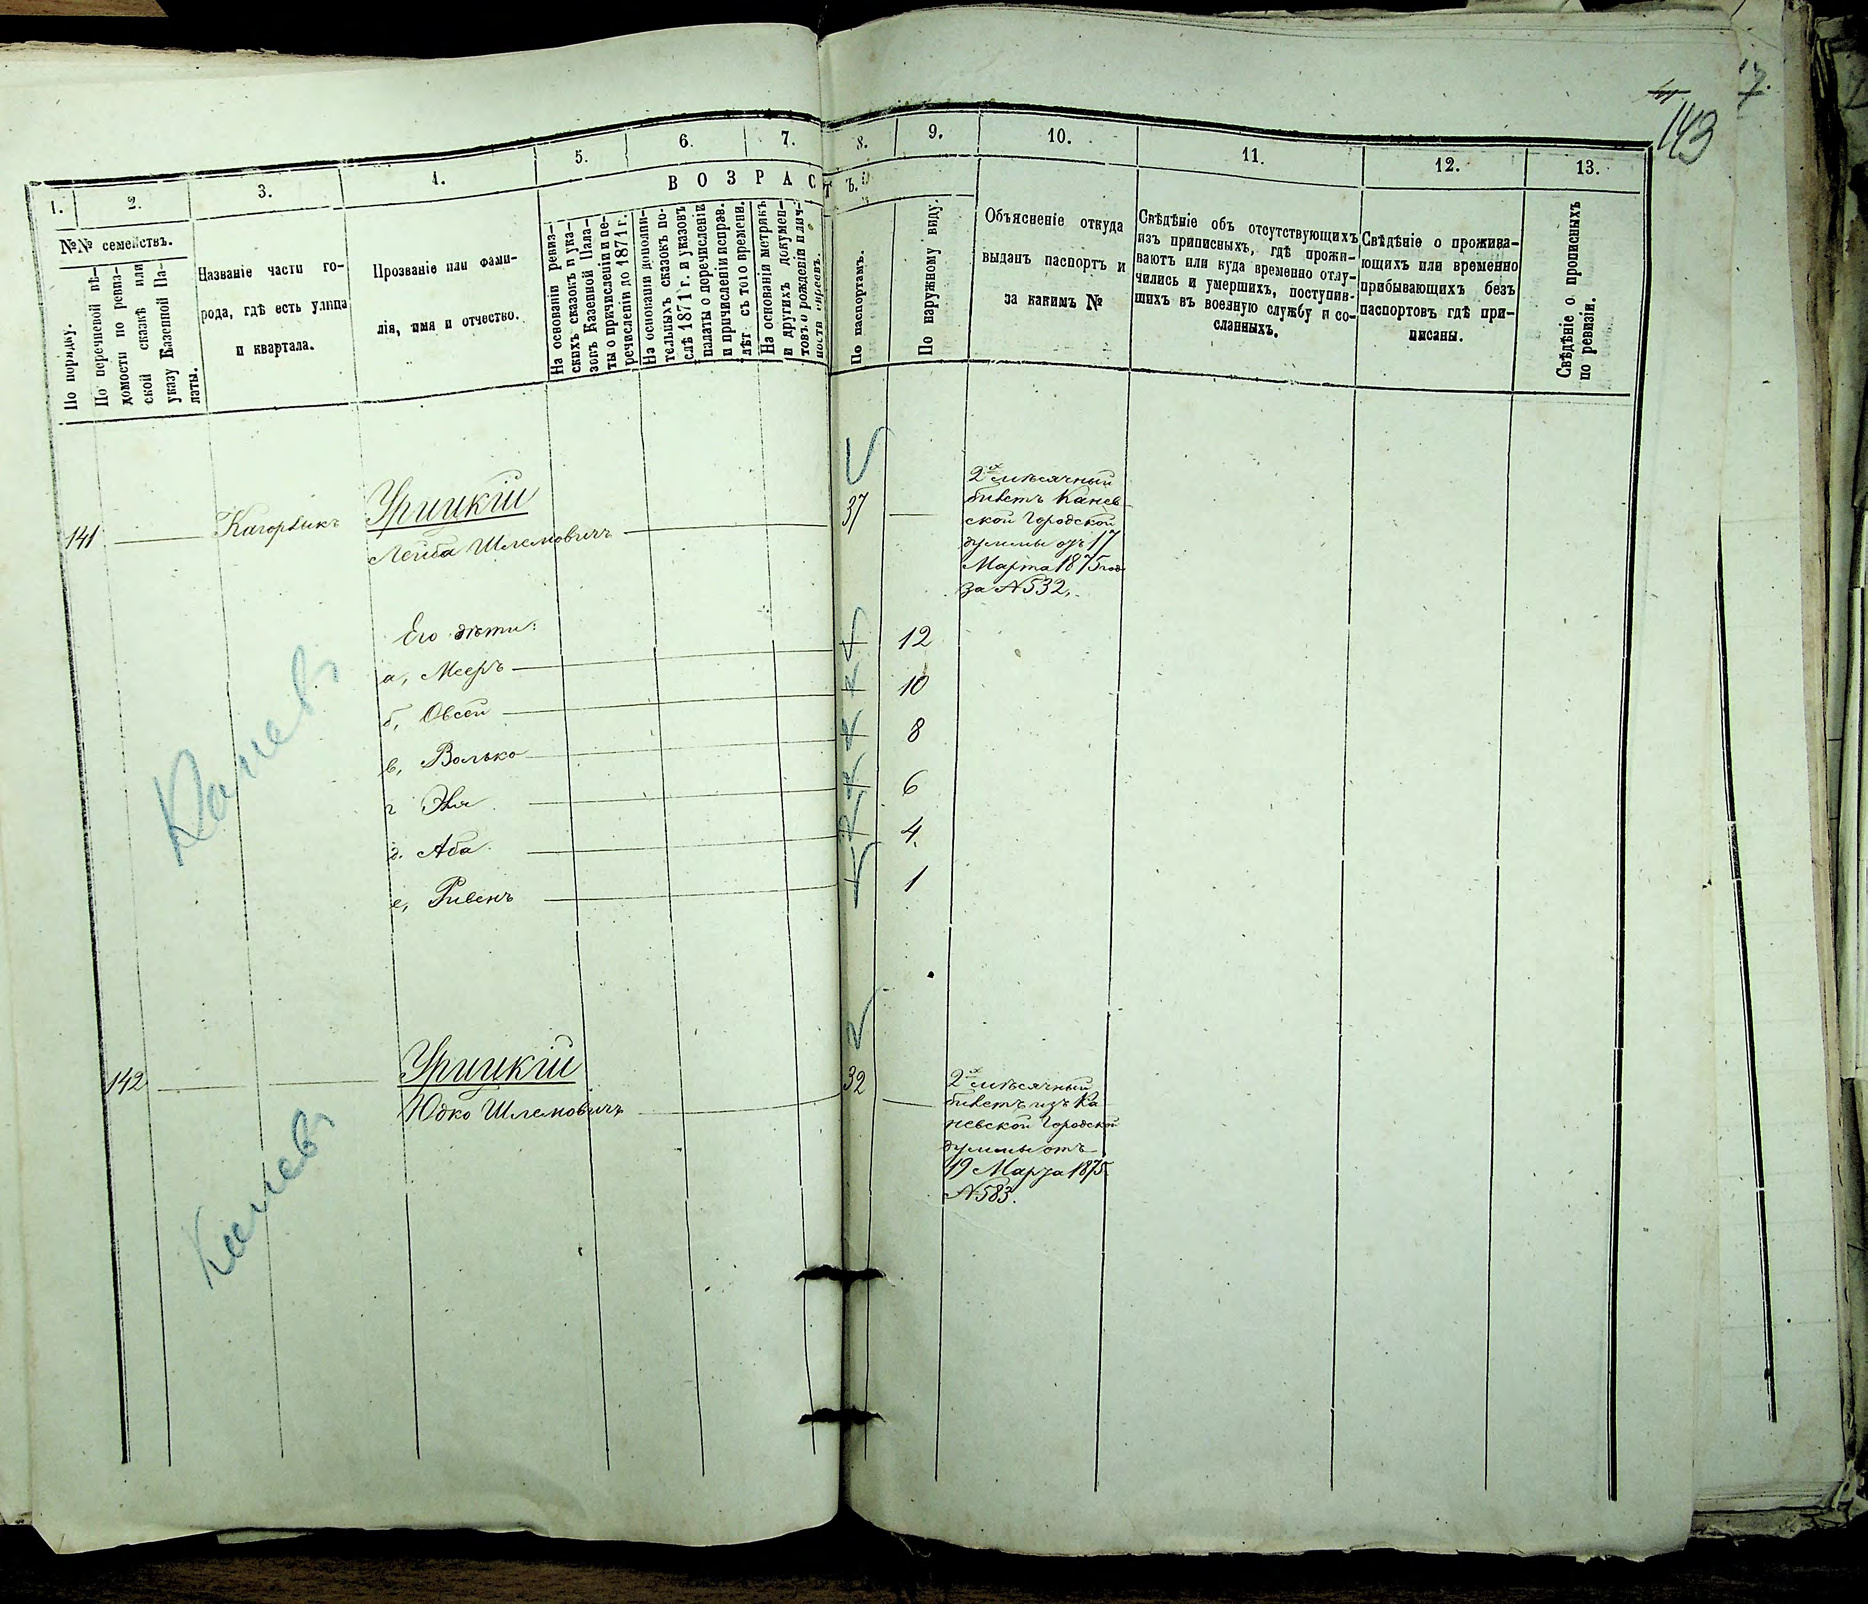 143
1.
2.
3.
4.
5.
6.
7.
8.
9.
10.
11.
12.
13.
ВОЗРАСТЪ.
№№ семействъ.
По порядку.
По перечневой вѣ-
домости по ревиз-
ской сказкѣ или
указу Казенной Па-
латы.
Названіе части го-
рода, гдѣ есть улица
и квартала.
Прозваніе или фами-
лія, имя и отчество.
На основаніи ревиз-
скихъ сказокъ и ука-
зовъ Казенной Пала-
ты о причисленіи и пе-
речисленіи до 1871 г.
На основаніи дополни-
тельныхъ сказокъ по-
слѣ 1871 г. и указовъ
палаты о перечисленіи
и причисленіи исправ.
лѣт съ того времени.
На основаніи метрикъ
и другихъ докумен-
товъ о рожденіи и лич-
ности евреевъ.
По паспортамъ.
По наружному виду.
Объясненіе откуда
выданъ паспортъ и
за какимъ №
Свѣдѣніе объ отсутствующихъ
изъ приписныхъ, гдѣ прожи-
ваютъ или куда временно отлу-
чились и умершихъ, поступив-
шихъ въ военную службу и со-
сланныхъ.
Свѣдѣніе о прожива-
ющихъ или временно
прибывающихъ безъ
паспортовъ гдѣ при-
писаны.
Свѣдѣніе о прописныхъ
по ревизіи.
141
Кагорлыкъ
Урицкій
Лейба Шлемовичъ
37
2х мѣсячный
билетъ Канев
ской Городской
думмы отъ 17
Марта 1875 год
за №532.
Его дѣти:
а, Мееръ
12
б, Овсей
10
в, Волько
8
г Эля
6
д. Аба
4
е, Рувенъ
1
Каневъ
142
Урицкій
Юдко Шлемовичъ
32
2х мѣсячный
билетъ изъ Ка
невской Городской
думмы отъ
19 Марта 1875
№583.
Каневъ